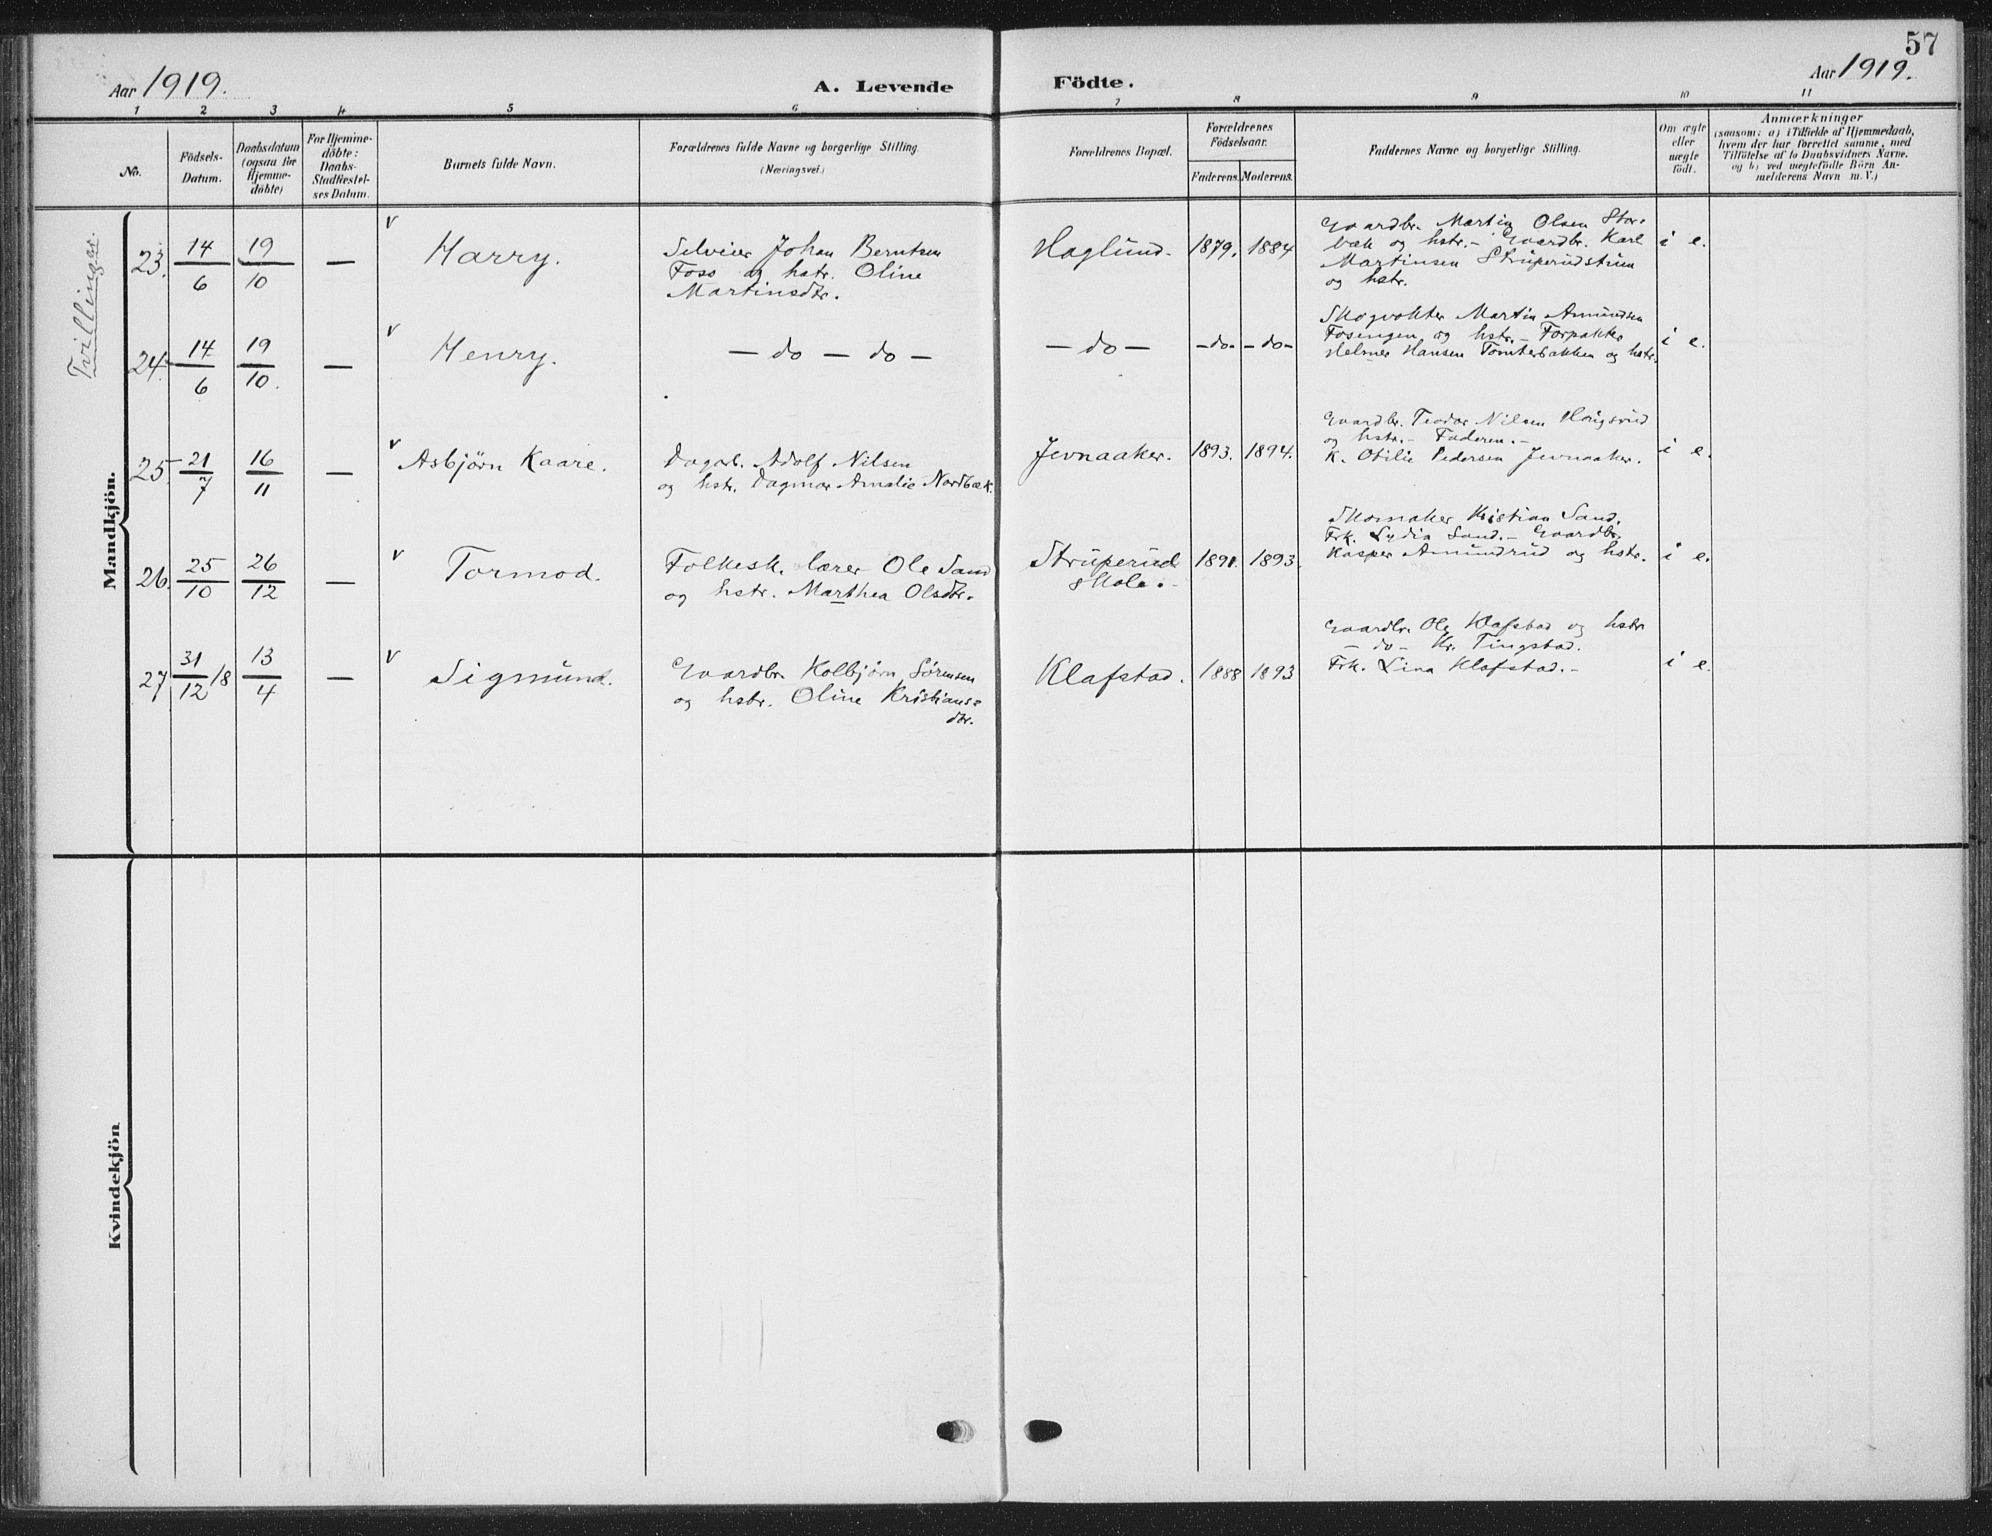 57
Aar 1919.
A. Levende Födte.
Aar 1919.
1 2 3 4 5 6 7 8 9 10 11
No.
Födsels-
Datum.
Daabsdatum
(ogsaa for
Hjemme-
döbte)
For Hjemme-
döbte:
Daabs-
Stadfæstel-
ses Datum.
Barnets fulde Navn.
Forældrenes fulde Navne og borgerlige Stilling.
(Næringsvei.)
Forældrenes Bopæl.
Forældrenes
Födselsaar.
Faderens. Moderens.
Faddernes Navne og borgerlige Stilling.
Om ægte
eller
uægte
født.
Anmærkninger
(saasom: a) i Tilfælde af Hjemmedaab,
hvem der har forrettet samme, med
Tilföielse af to Daabsvidners Navne,
og b) ved uægtefödte Börn An-
melderens Navn m. V.)
Tvillinger.
Mandkjön.
23. 14/6 19/10 — v Harry.
Selveier Johan Berntsen
Foss og hstr. Oline
Martinsdtr.
Haglund. 1879. 1884
Gaardbr. Martin Olsen Stor-
bæk og hstr. – Gaardbr. Karl
Martinsen Struperudstuen
og hstr.
i e.
24. 14/6 19/10. — v Henry.
— do — do —
— do — – do – – do –
Skogvokter Martin Amundsen
Fosengen og hstr. – Forpakter
Helmer Hansen Tomterbakken og hstr.
i e.
25. 21/7 16/11 — v Asbjørn Kaare.
Dagarb. Adolf Nilsen
og hstr. Dagmar Amalie Nordbæk.
Jevnaaker. 1893. 1894.
Gaardbr. Teodor Nilsen Haugsrud
og hstr. – Faderen. –
K. Otilie Pedersen Jevnaaker.
i e.
26. 25/10 26/12 — v Tormod.
Folkesk. lærer Ole Sand
og hstr. Marthea Olsdtr.
Struperud
skole. – 1891. 1893.
Skomaker Kristian Sand.
Frk. Lydia Sand. – Gaardbr.
Kasper Amundrud og hstr.
i e.
27 31/12 18 13/4 — v Sigmund.
Gaardbr. Kolbjørn Sørensen
og hstr. Oline Kristians-
dtr.
Klafstad. 1888 1893
Gaardbr. Ole Klafstad og hstr
– do – Kr. Tingstad.
Frk. Lina Klafstad. –
i e.
Kvindekjön